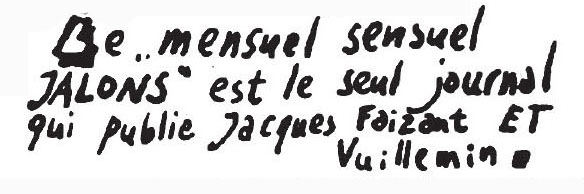 Le "mensuel sensuel
JALONS" est le seul journal
qui publie Jacques Faizant ET
Vuillemin